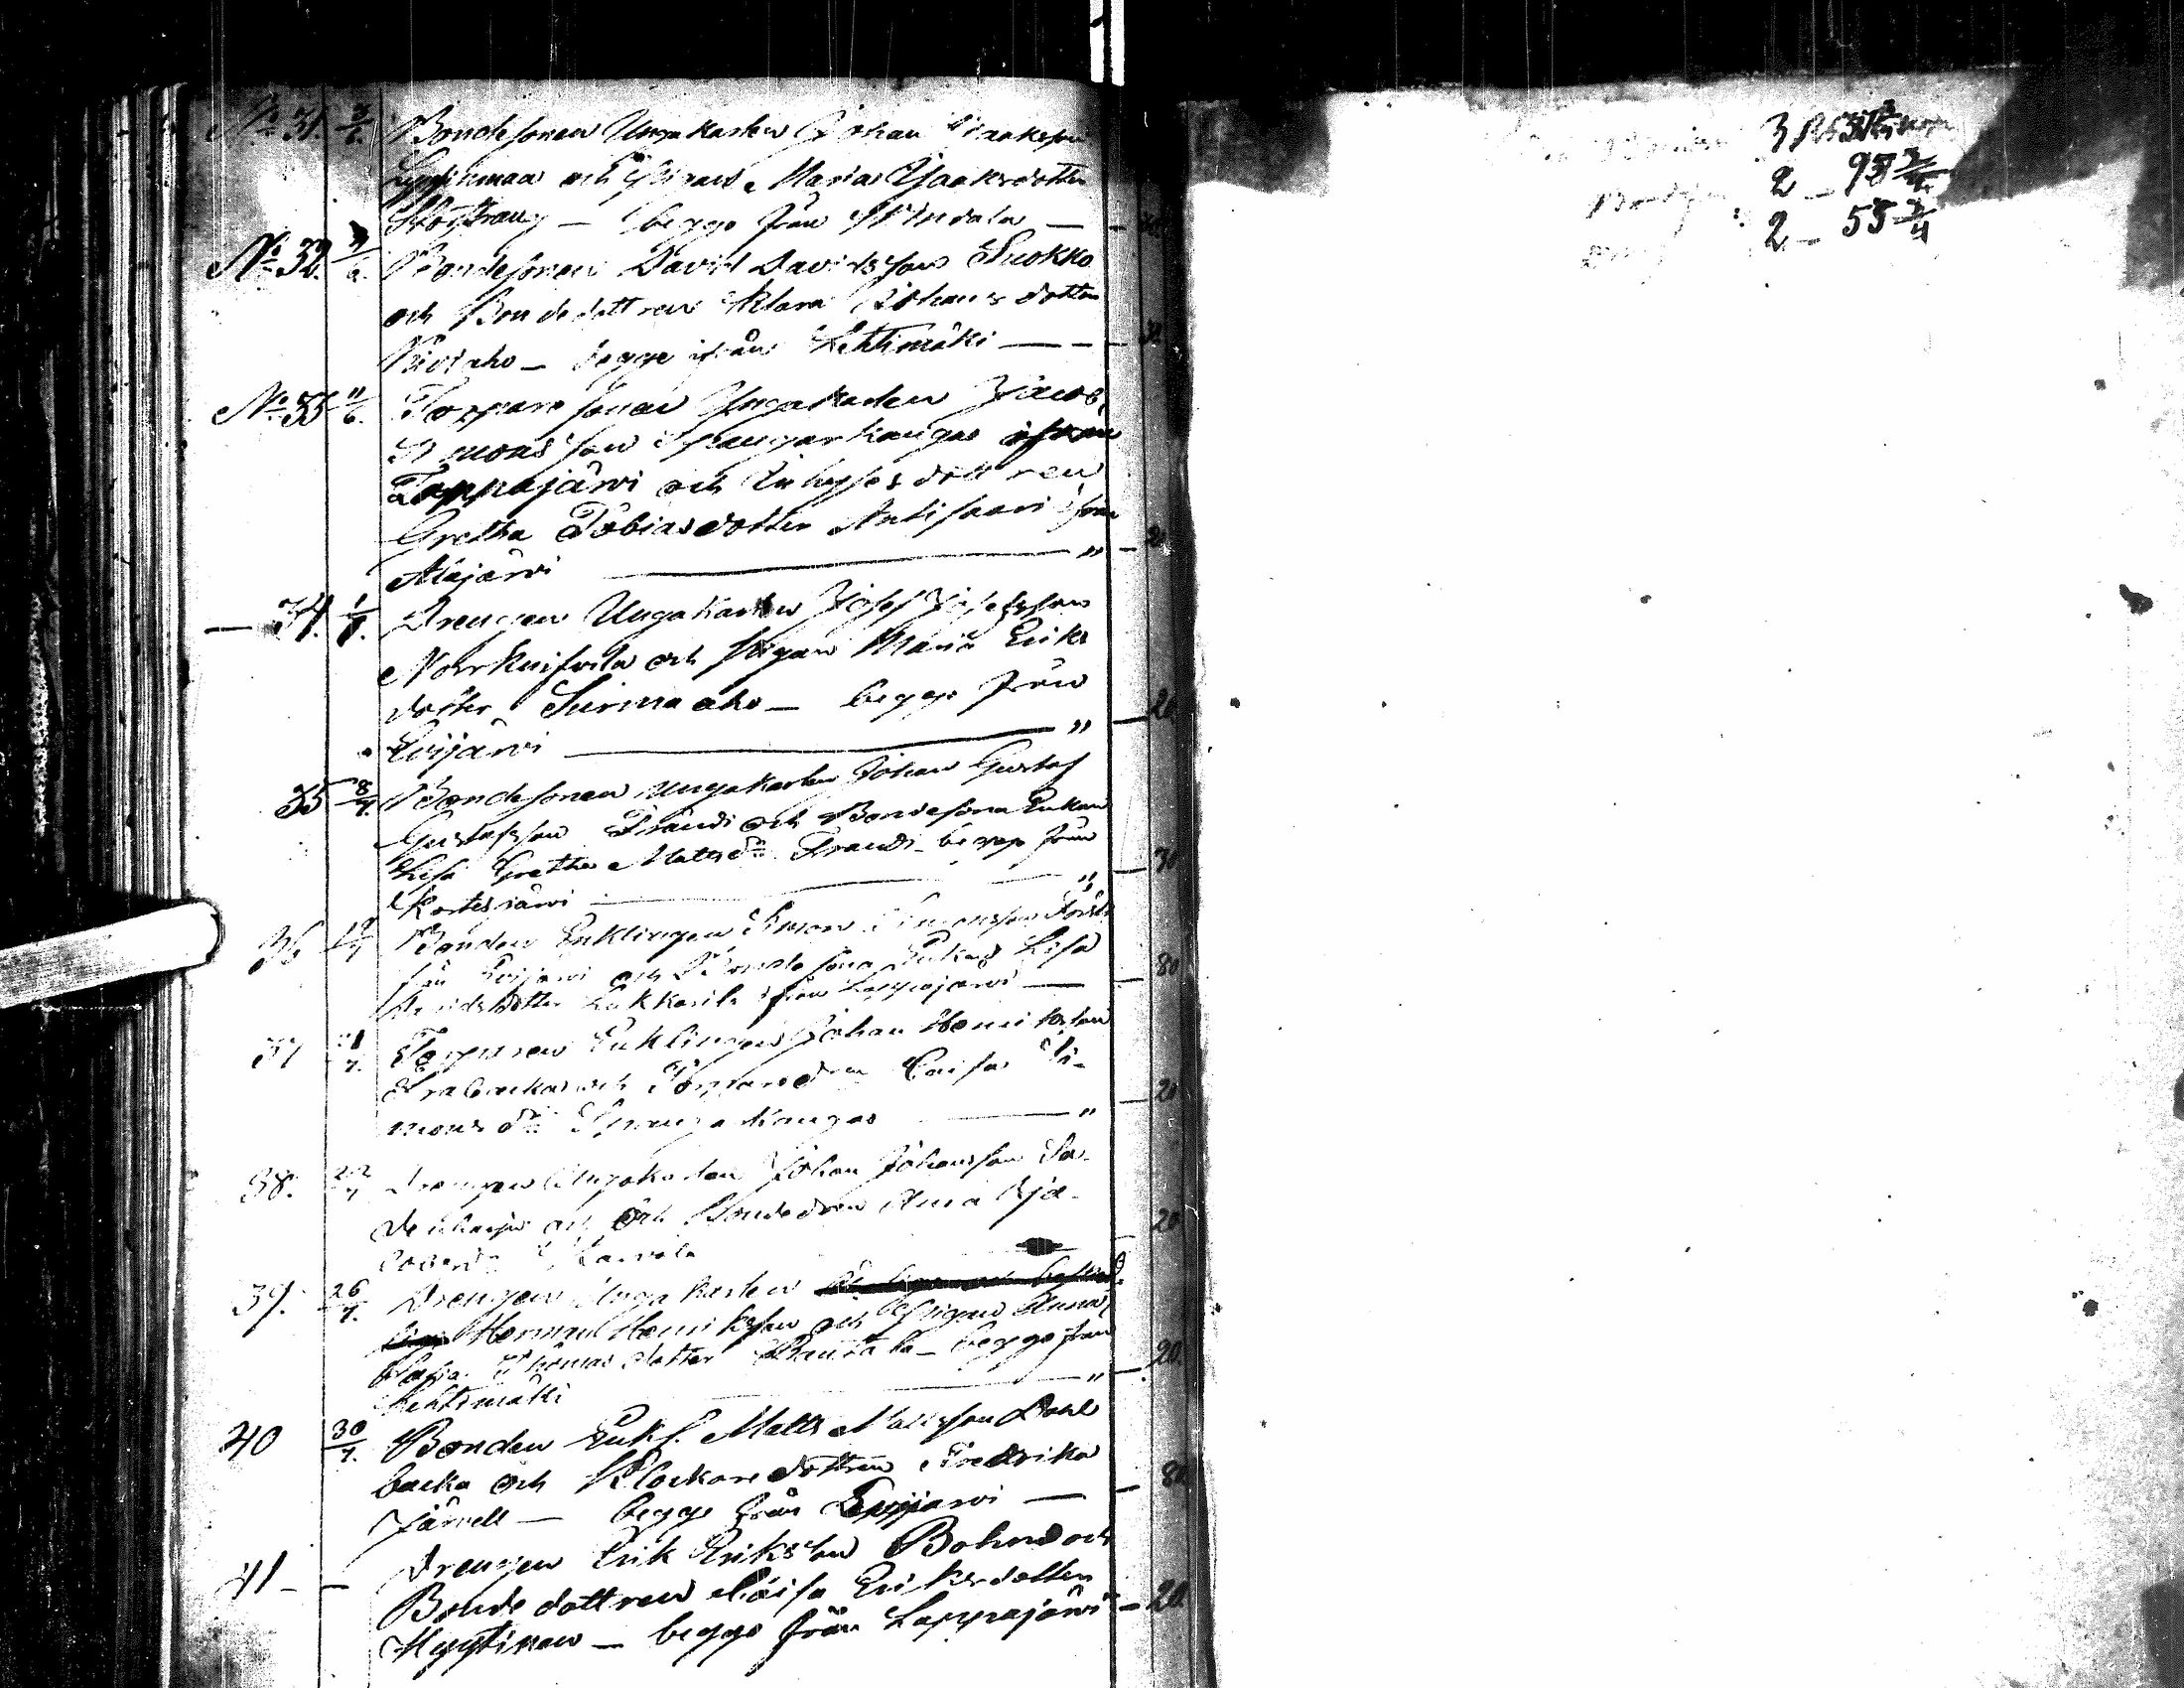 No 31. 3/6. Bondesonen Ungakarlen Johan Isaaksson
och Pigan Maria Isaaksdotter
begge från Windala — 30
No 32. 3/6. Bondesonen David Davidsson Suokko
och Bondedottren Klara Johansdotter
begge ifrån Lehtimäki — 30
No 33 11/6. Torparesonen Ungakarlen Jacob
Simonsson Spangarkangas ifrån
Lappajärvi och Inhysesdottren
Gretha Tobiasdotter Antisaari ifrån
Alajärvi — " — 20
— 34. 1/7. Drengen Ungakarlen Josef Josefsson
Norrkniivilä och Pigan Maria Eriks
dotter Surmaaho — begge från
Evijärvi — " — 20
35 8/7. Bondesonen Ungakarlen Johan Gustaf
Gustafsson Frandi och Bondesona Enkan
Lisa Gretha Mattsdr Frandi begge från
Kortesjärvi — " — 30
36 Bonden Enklingen Simon Simonsson
från Evijärvi och Bondesona Enkan Lisa
Davidsdotter Lukkarila ifrån Lappajärvi — 80
37 21/7. Torparen Enklingen Johan Henriksson
och Torparedrn Caisa Si-
mons dr Spangakangas — " — 20
38. 22/7 Drengen Ungakarlen Johan Johansson Sa-
och Bondedrn Anna Ja-
cobsdr Karvala — 20
39. 26/7. Drengen Ungakarlen
Herman Henriksson och Pigan Anna
Caisa Thomasdotter Rautaka — begge från
Lehtimäki — " — 20.
40 30/7. Bonden Enkl. Matts Mattsson Dahl
backa och Klockaredottren Fredrika
Järnell — begge från Evijärvi — 80
41 — — Drengen Erik Eriksson Bohm och
Bondedottren Caisa Eriksdotter
Hyytinen — begge från Lappajärvi — 20
3
2 — 93 3/4
2 — 55 3/4